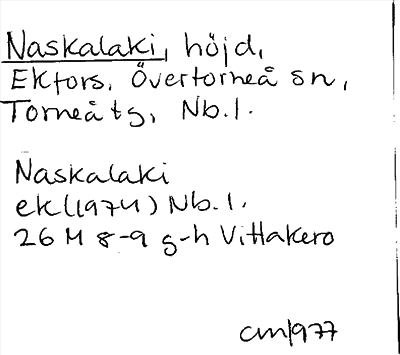 Naskalaki, höjd,
Ekfors, Övertorneå sn,
Torneå tg, Nb. l.
Naskalaki
ek (1974) Nb. l.
26 M 8-9 g-h Vittakero
cm/977